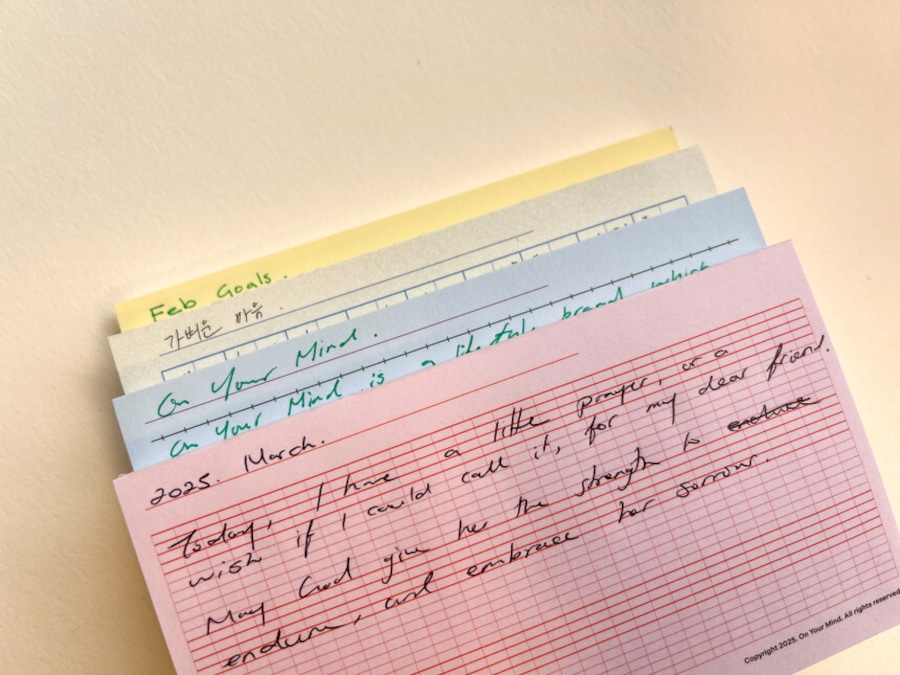 Feb Goals.
가벼운 마음.
On Your Mind.
On Your Mind is a lifestyle brand which
2025. March.
Today, I have a little prayer, or a
wish if I could call it, for my dear friend.
May God give her the strength to endure
endure, and embrace her sorrow.
Copyright 2025. On Your Mind. All rights reserved